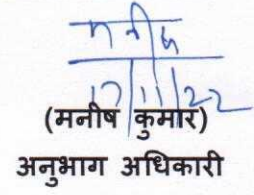 मनीष
17/11/22
(मनीष कुमार)
अनुभाग अधिकारी